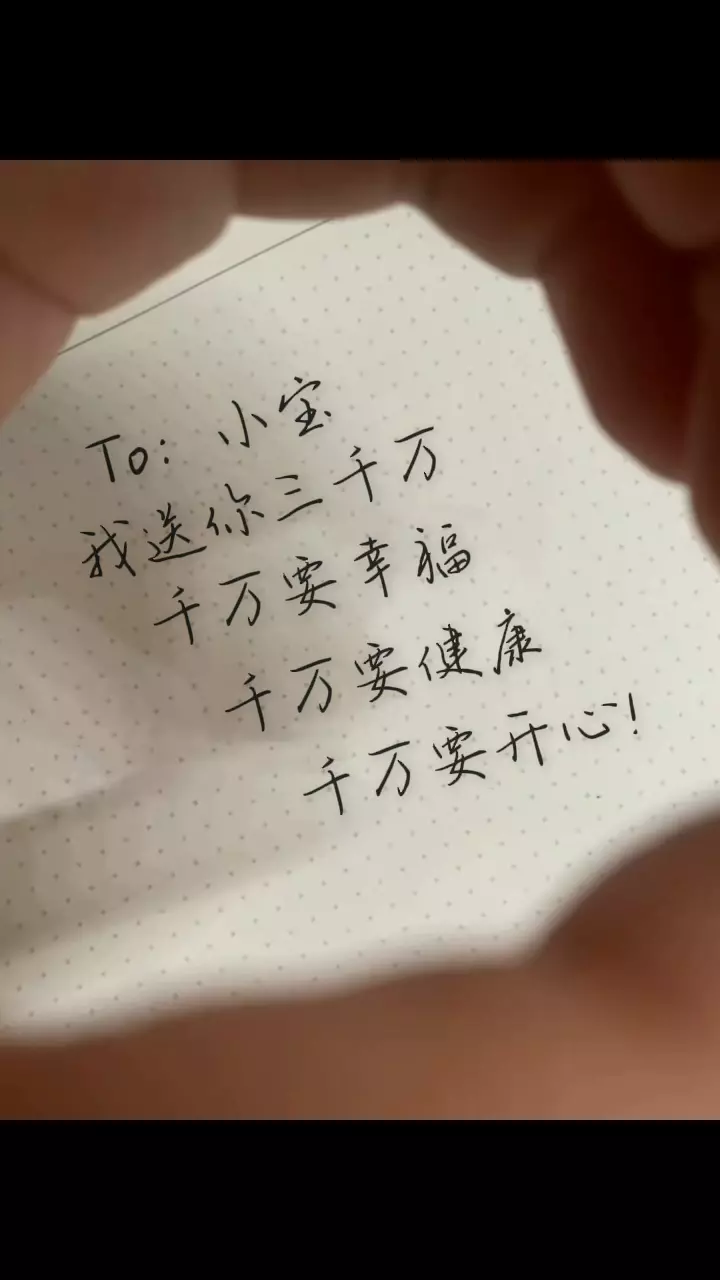 To: 小宝
我送你三千万
千万要幸福
千万要健康
千万要开心!